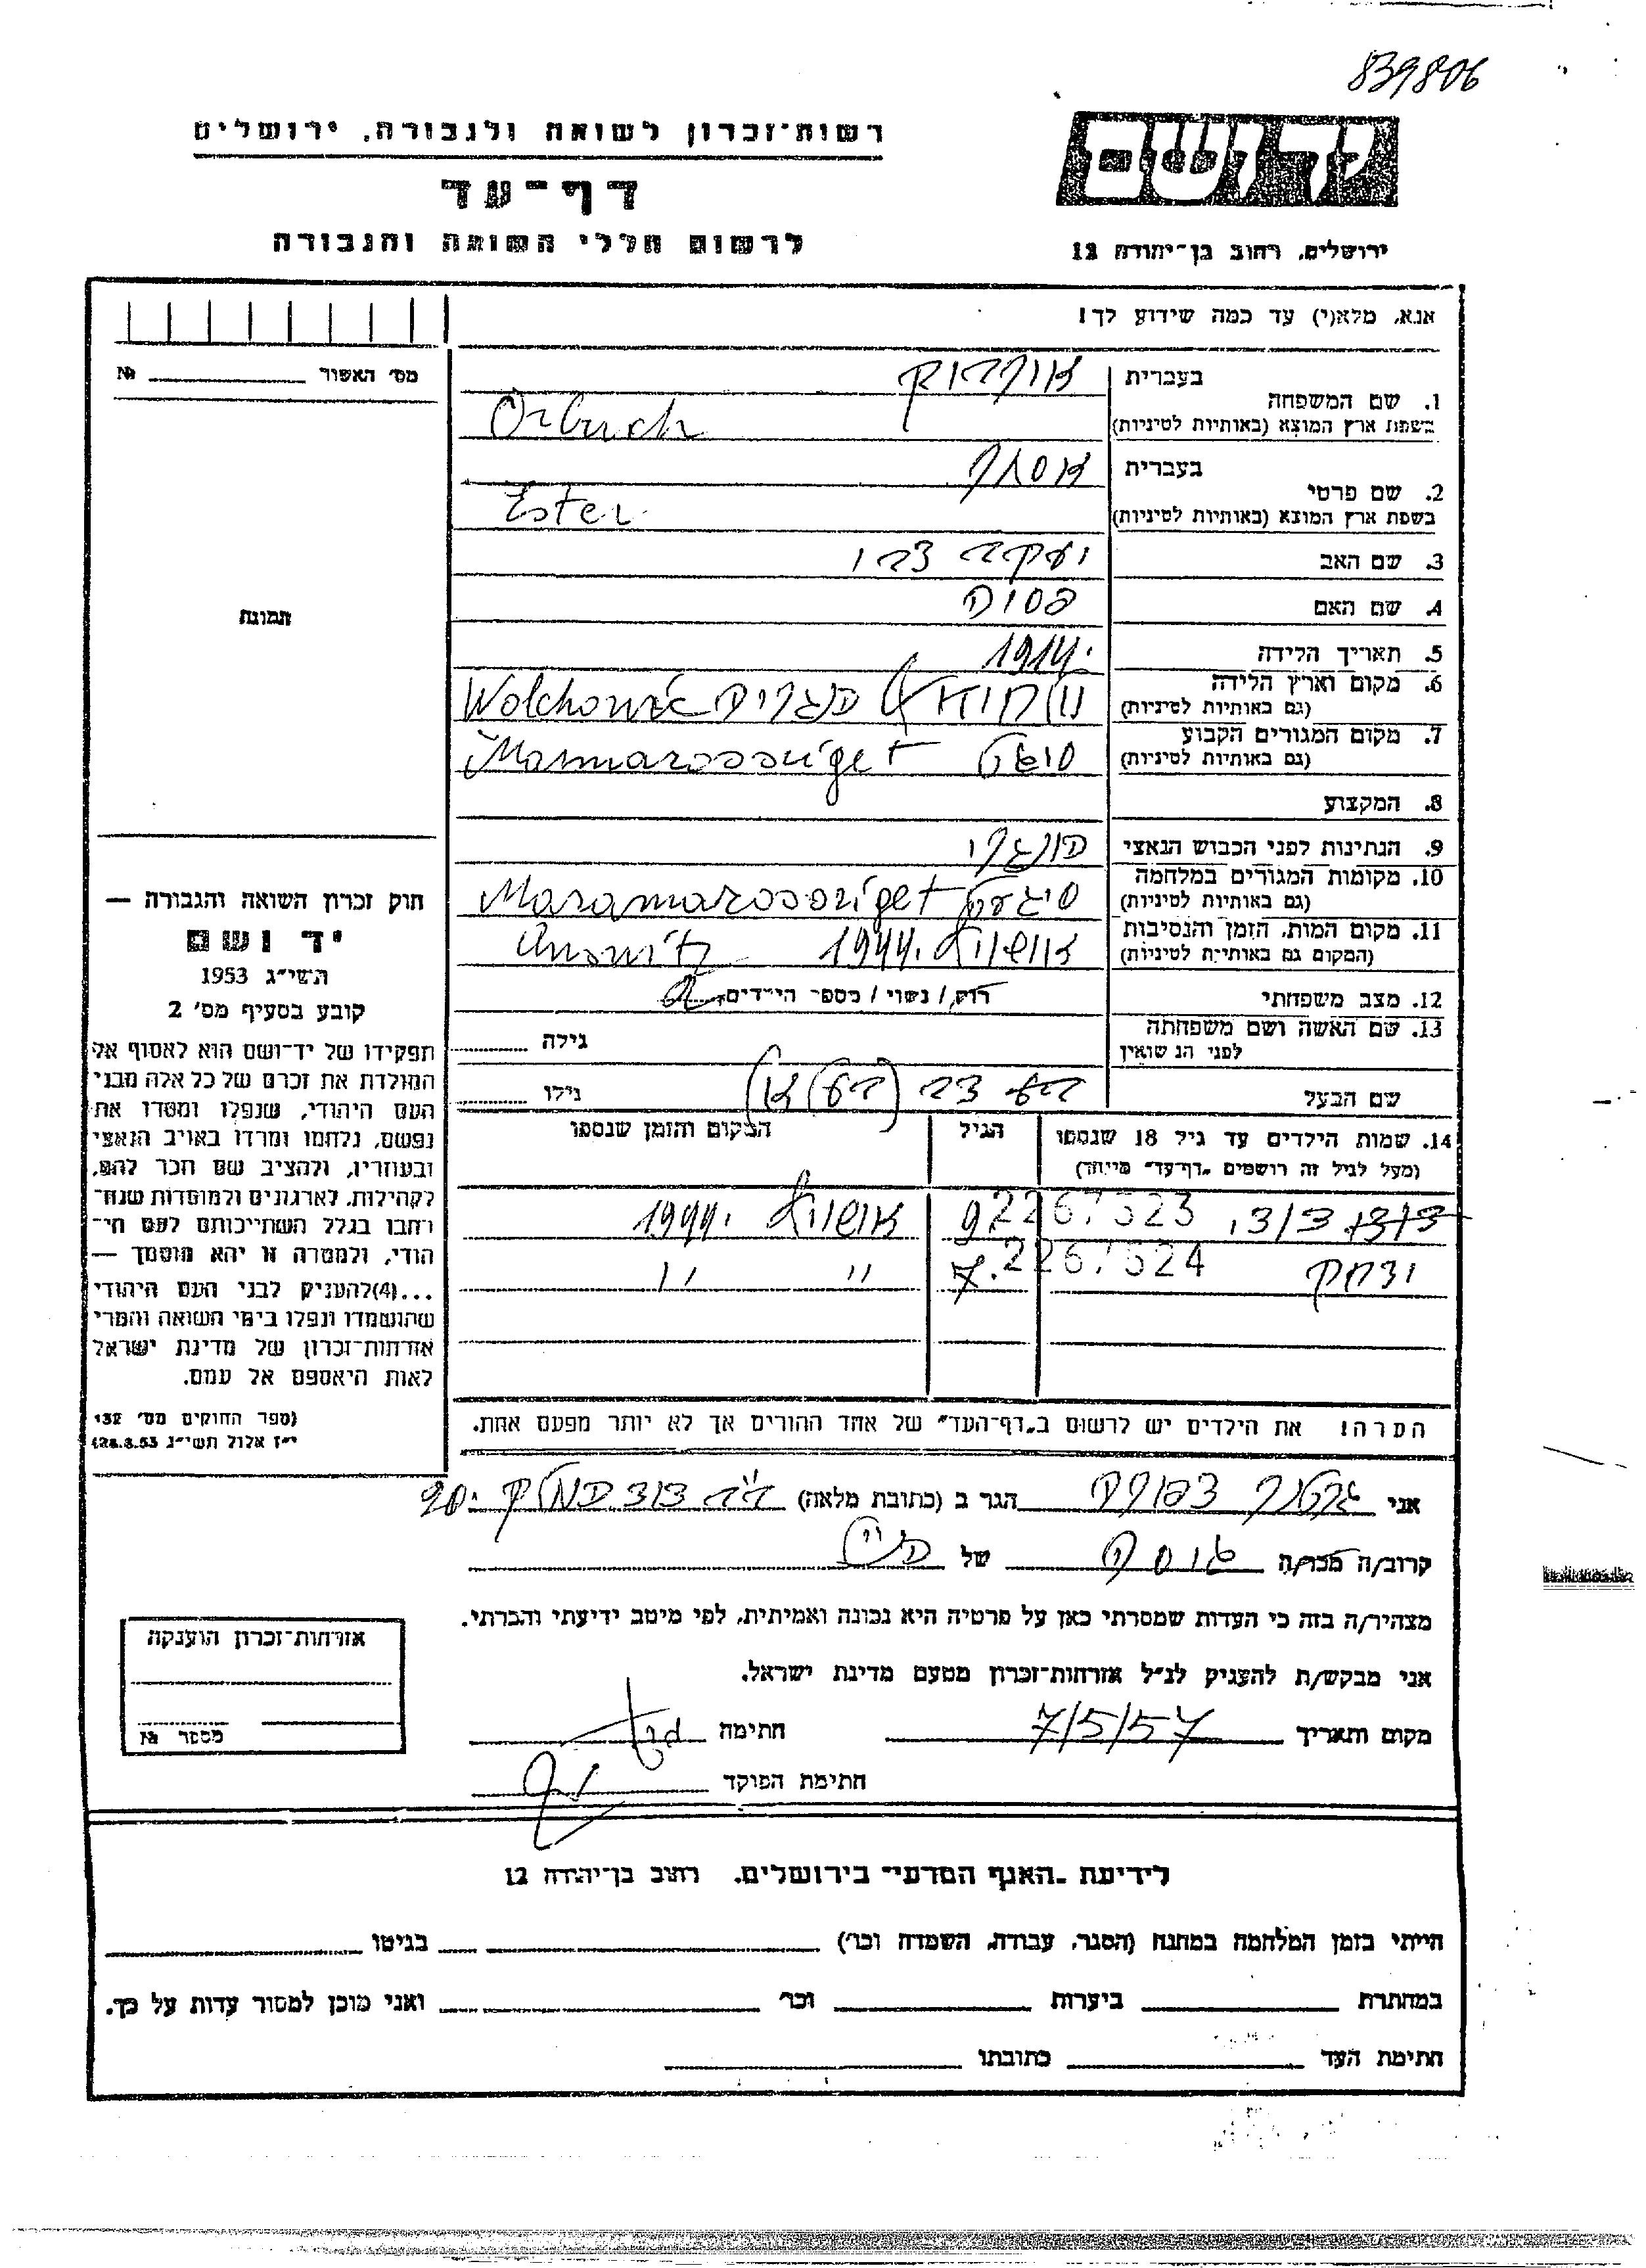 839806
יד ושם
רשות־זכרון לשואה ולגבורה, ירושלים
דף־עד
לרשום חללי השואה והגבורה
ירושלים, רחוב בן־יהודה 12
אנא, מלא(י) עד כמה שידוע לך!
מס' האשור № 
1. שם המשפחה
בעברית אורבוך
בשפת ארץ המוצא (באותיות לטיניות) Orbuch
2. שם פרטי
בעברית אסתר
בשפת ארץ המוצא (באותיות לטיניות) Ester
3. שם האב יעקב צבי
4. שם האם
5. תאריך הלידה 1914.
6. מקום וארץ הלידה
(גם באותיות לטיניות)
7. מקום המגורים הקבוע
(גם באותיות לטיניות) סיגט Marmarossziget
8. המקצוע
9. הנתינות לפני הכבוש הנאצי הונגרי
10. מקומות המגורים במלחמה
(גם באותיות לטיניות) סיגעט Maramarossziget
11. מקום המות, הזמן והנסיבות
(המקום גם באותיות לטיניות) אושוויץ 1944.
12. מצב משפחתי רווק / נשוי / מספר הילדים 2
13. שם האשה ושם משפחתה
לפני הנשואין
גילה
שם הבעל
גילו
14. שמות הילדים עד גיל 18 שנספו
(מעל לגיל זה רושמים "דף־עד" מיוחד)
הגיל
המקום והזמן שנספו
2267523 9 אושוויץ 1944.
יצחק 2267524 7. " "
הערה: את הילדים יש לרשום ב"דף־העד" של אחד ההורים אך לא יותר מפעם אחת.
תמונה
חוק זכרון השואה והגבורה —
יד ושם
תשי"ג 1953
קובע בסעיף מס' 2
תפקידו של יד־ושם הוא לאסוף אל
המולדת את זכרם של כל אלה מבני
העם היהודי, שנפלו ומסרו את
נפשם, נלחמו ומרדו באויב הנאצי
ובעוזריו, ולהציב שם וזכר להם,
לקהילות, לארגונים ולמוסדות שנח־
רבו בגלל השתייכותם לעם הי־
הודי, ולמטרה זו יהא מוסמך —
...(4)להעניק לבני העם היהודי
שהושמדו ונפלו בימי השואה והמרי
אזרחות־זכרון של מדינת ישראל
לאות היאספם אל עמם.
(ספר החוקים מס' 132
י"ז אלול תשי"ג 28.8.53)
אני צפורה הגר ב (כתובת מלאה) דוד המלך 20.
קרוב/ה מכר/ה גיסה של הנ"ל
מצהיר/ה בזה כי העדות שמסרתי כאן על פרטיה היא נכונה ואמיתית, לפי מיטב ידיעתי והכרתי.
אני מבקש/ת להעניק לנ"ל אזרחות־זכרון מטעם מדינת ישראל.
מקום ותאריך 7/5/57 חתימה
חתימת הפוקד
אזרחות־זכרון הוענקה
מספר №
לידיעת "האגף המדעי" בירושלים, רחוב בן־יהודה 12
הייתי בזמן המלחמה במחנה (הסגר, עבודה, השמדה וכו') בגיטו
במחתרת ביערות וכו' ואני מוכן למסור עדות על כך.
חתימת העד כתובתו